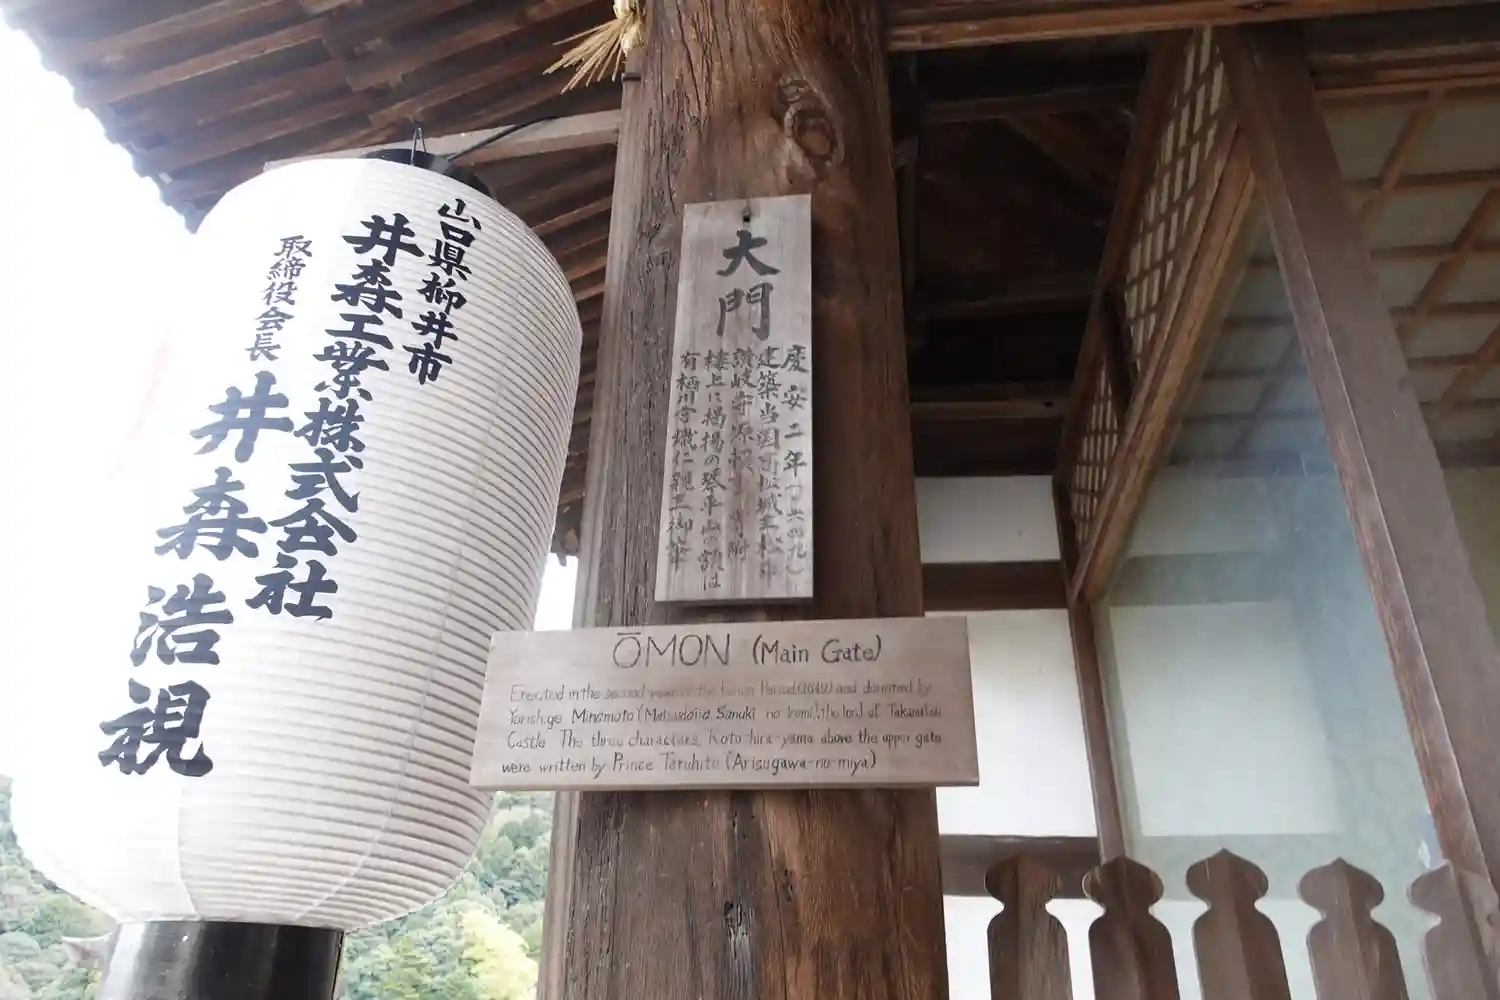 山口県柳井市
井森工業株式会社
取締役会長
井森浩視
大門
慶安二年(一六四九)
建築当国高松城主松平
讃岐守源頼重寄附
楼上に掲揚の琴平山の額は
有栖川宮熾仁親王御筆
ŌMON (Main Gate)
Erected in the second year of the Keian Period (1649) and donated by
Yorishige Minamoto (Matsudaira Sanuki no kami), the lord of Takamatsu
Castle The three characters, Koto-hira-yama above the upper gate
were written by Prince Taruhito (Arisugawa-no-miya)